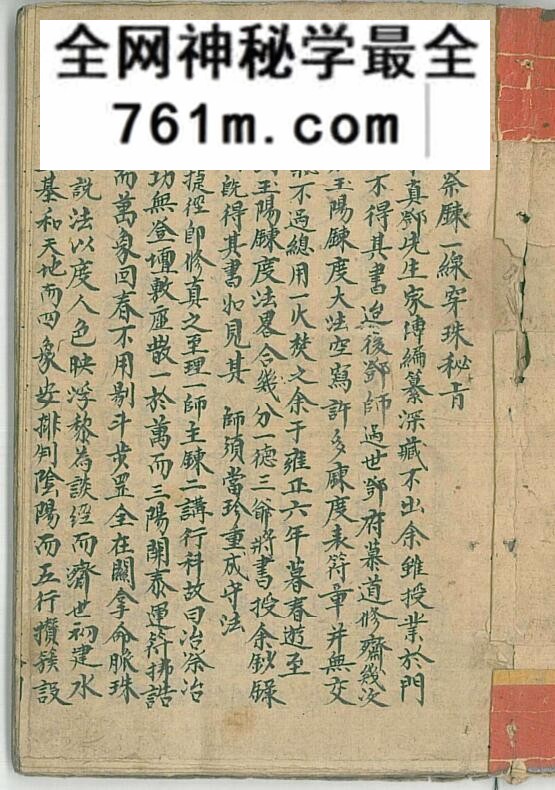 全网神秘学最全
761m.com
祭鍊一線穿珠秘旨
真鄧先生家傳編纂深藏不出余雖授業於門
不得其書迨後鄧師過世鄧府慕道修齋幾次
玉陽鍊度大法空寫許多鍊度表符章并無交
不過總用一火焚之余于雍正六年暮春遊至
玉陽鍊度法畧合幾分一德三爺將書授余鈔錄
既得其書如見其 師須當珍重成守法
捷徑即修真之至理一師主鍊二講行科故曰冶深冶
功無登壇敷座散一於萬而三陽開泰運符拂誥
而萬象回春不用剔斗步罡全在關拿命脈珠
說法以度人色映浮黎為談經而濟世初建水
基和天地而四象安排制陰陽而五行攢簇設